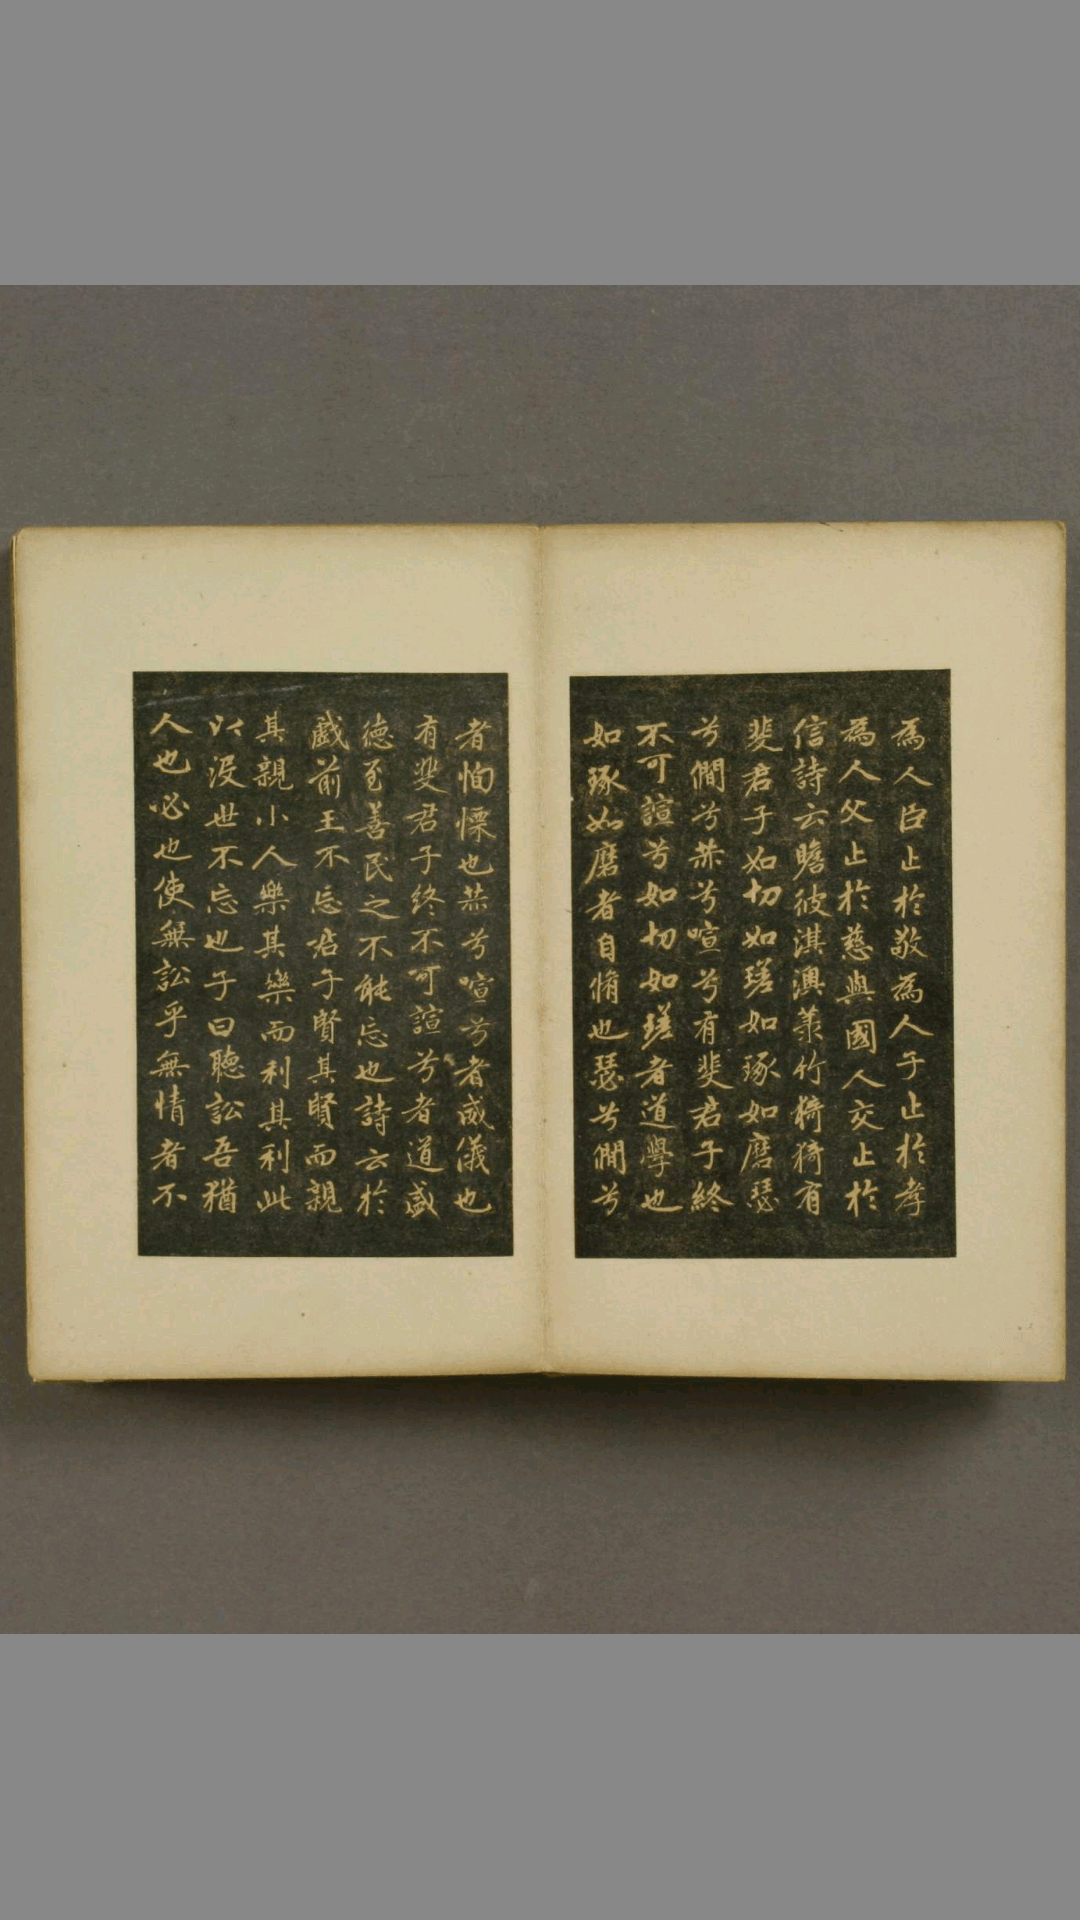 為人臣止於敬為人子止於孝
為人父止於慈與國人交止於
信詩云瞻彼淇澳菉竹猗猗有
斐君子如切如瑳如琢如磨瑟
兮僩兮恭兮喧兮有斐君子終
不可諠兮如切如瑳者道學也
如琢如磨者自脩也瑟兮僩兮
者恂慄也恭兮喧兮者威儀也
有斐君子終不可諠兮者道盛
德至善民之不能忘也詩云於
戲前王不忘君子賢其賢而親
其親小人樂其樂而利其利此
以没世不忘也子曰聽訟吾猶
人也必也使無訟乎無情者不